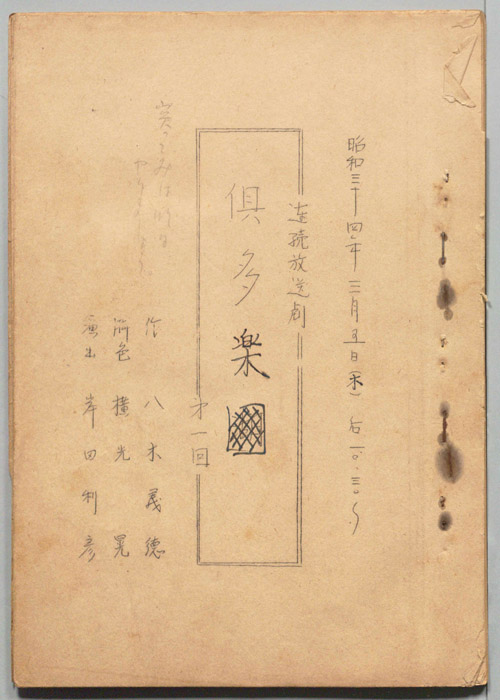 昭和三十四年三月五日(木)后一〇.三〇〜
連続放送劇
倶多楽
第一回
作 八木義徳
脚色 横光晃
演出 岸田利彦